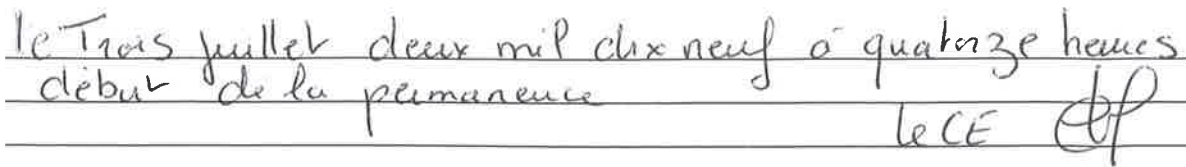 le Trois juillet deux mil dix neuf à quatorze heures
début de la permanence
le CE